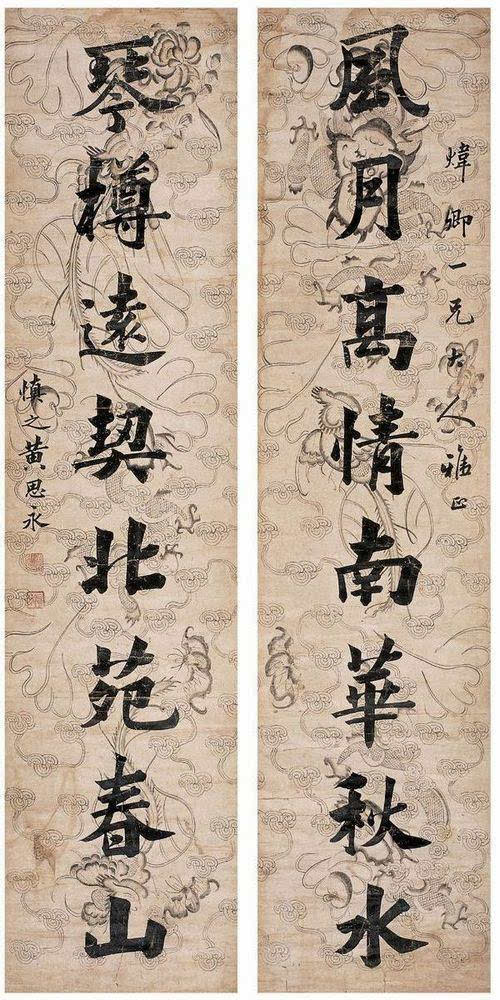 煒卿一兄大人雅正
風月高情南華秋水
琴樽遠契北苑春山
慎之黃思永